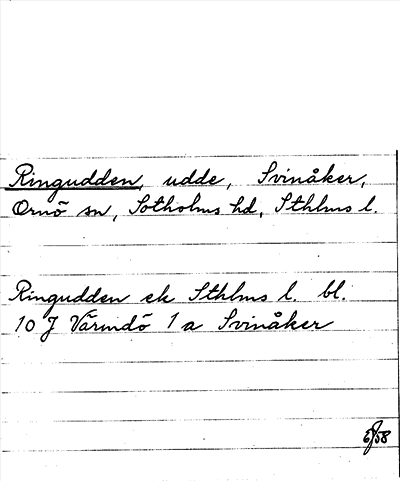 Ringudden, udde, Svinåker,
Ornö sn, Sotholms hd, Sthlms l.
Ringudden ek Sthlms l. bl.
10 J Värmdö 1 a Svinåker